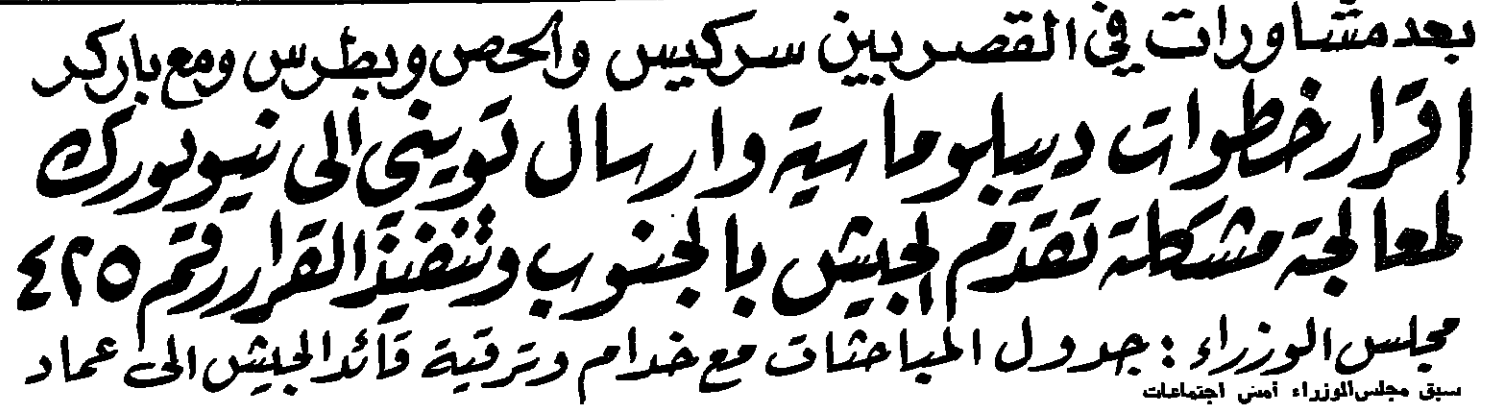 بعد مشاورات في القصر بين سركيس والحص وبطرس ومع باركر
إقرار خطوات ديبلوماسية وارسال تويني الى نيويورك
لمعالجة مشكلة تقدم الجيش بالجنوب وتنفيذ القرار رقم ٤٢٥
مجلس الوزراء : جدول المباحثات مع خدام وترقية قائد الجيش الى عماد
سبق مجلس الوزراء أمس اجتماعات